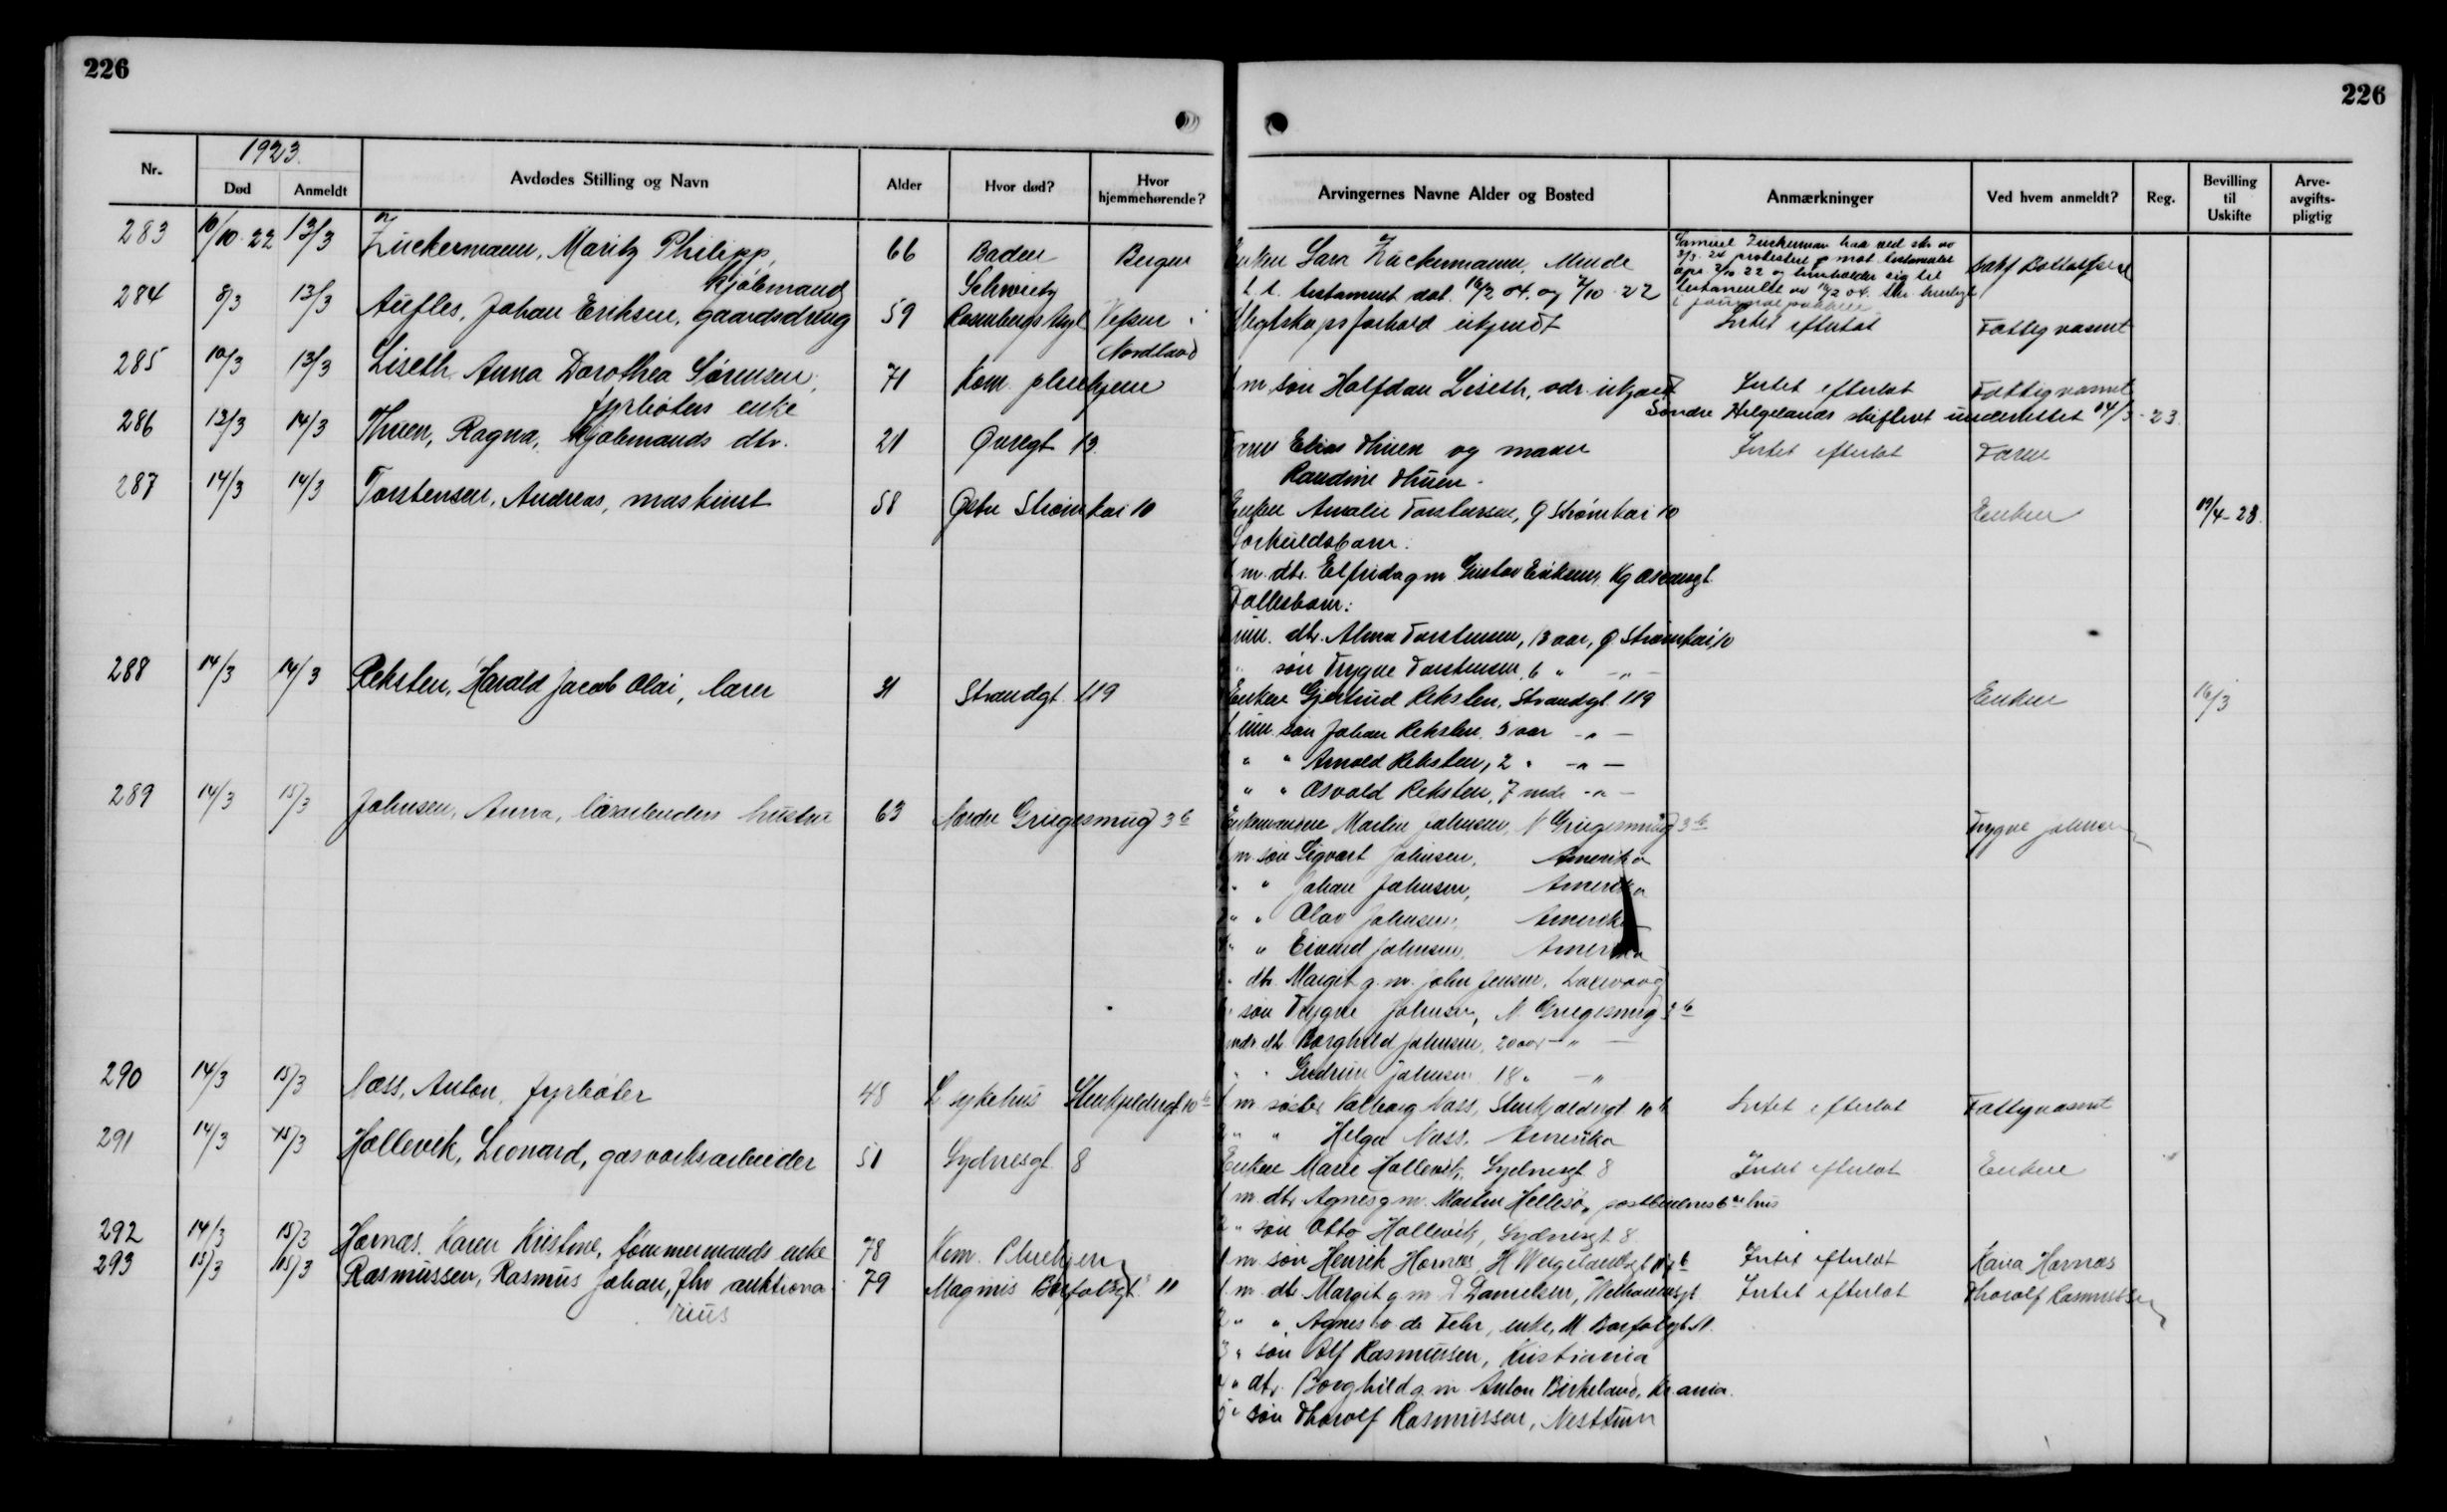 226
226
1923.
Nr. Død Anmeldt Avdødes Stilling og Navn Alder Hvor død? Hvor hjemmehørende? Arvingernes Navne Alder og Bosted Anmærkninger Ved hvem anmeldt? Reg. Bevilling til Uskifte Arve-avgifts-pligtig
283 10/10.22 13/3 Zuckermann, Moritz Philipp, kjøbmand 66 Baden Schweitz Bergen
Enken Sara Zuckermann, Minde
t. t. testament dat. 16/2 04. og 2/10 22
Samuel Zuckerman har ved skr av
protestert mot testamentet
og henholder sig til
testamentet av 16/2 04.
284 8/3 13/3 Aufles, Johan Eriksen, gaardsdreng 59 Rosenbergs Asyl Vefsen i Nordland
Slegtskapsforhold ukjendt Intet efterlat Fattigvæsnet
285 10/3 13/3 Liseth Anna Dorothea Sørensen, fyrbøters enke 71 Kom. pleiehjem
1 m søn Halfdan Liseth, adr. ukjendt Intet efterlat Fattigvæsnet
Søndre Helgelands skifteret underrettet 14/3-23.
286 13/3 14/3 Thuen, Ragna, kjøbmands dtr. 21 Øvregt 13.
Faren Elias Thuen og moren Intet efterlat Faren
Randine Thuen.
287 14/3 14/3 Torstensen, Andreas, maskinist 58 Østre Strømkai 10
Enken Amalie Torstensen, Ø Strømkai 10 Enken 19/4-23.
Særkuldsbarn:
1 m. dtr. Elfrida g m Gustav Eriksen, Kg Oscarsgt
Fællesbarn:
um. dtr. Alma Torstensen, 13 aar, Ø Strømkai 10
" søn Trygve Torstensen, 6 " — " —
288 14/3 14/3 Reksten, Harald Jacob Olai, lærer 31 Strandgt 119
Enken Gjertrud Reksten, Strandgt. 119 Enken 16/3
1 um. søn Johan Reksten, 3 aar — " —
" " Arnold Reksten, 2 " — " —
" " Osvald Reksten, 7 mdr — " —
289 14/3 15/3 Johnsen, Anna, løsarbeiders hustru 63 Nordre Griegesmug 3 b
Enkemanden Martin Johnsen, N Griegesmug 3 b Trygve Johnsen
1 m søn Sigvart Johnsen, Amerika
" " Johan Johnsen, Amerika
" " Olav Johnsen, Amerika
" " Eivind Johnsen, Amerika
" dtr. Margit g. m. John Jensen, Laxevaag
" søn Trygve Johnsen, N. Griegesmug 3 b
" dtr Borghild Johnsen, 20 aar — " —
" " Gudrun Johnsen 18 " — "
290 14/3 15/3 Næss, Anton, fyrbøter 48 L sykehus Stenkjeldergt 10 b
1 m søster Valborg Næss, Stenkjeldergt 10 b Intet efterlat Fattigvæsnet
2 " " Helga Næss, Amerika
291 14/3 15/3 Hallevik, Leonard, gasværksarbeider 51 Sydnesgt 8
Enken Marie Hallevik, Sydnesgt 8 Intet efterlat Enken
1 m. dtr Agnes g m. Martin Hellesø,
2 " søn Otto Hallevik, Sydnesgt 8.
292 14/3 15/3 Hornæs, Karen Kristine, tømmermands enke 78 Kom. Pleiehjem
1 m søn Henrik Hornæs, H Wergelandsgt Intet efterlat Kaia Hornæs
293 15/3 15/3 Rasmussen, Rasmus Johan, fhv auktionarius 79 Magnus Barfotsgt 11
1 m dtr Margit g m D Danielsen, Welhavensgt Intet efterlat Thorolf Rasmussen
2 " " Agnes v. de Fehr, enke, M Barfotsgt 11.
3 " søn Alf Rasmussen, Kristiania
4 " dtr. Borghild g. m. Anton Birkeland, Kr.ania.
5 " søn Thorolf Rasmussen, Nesttun